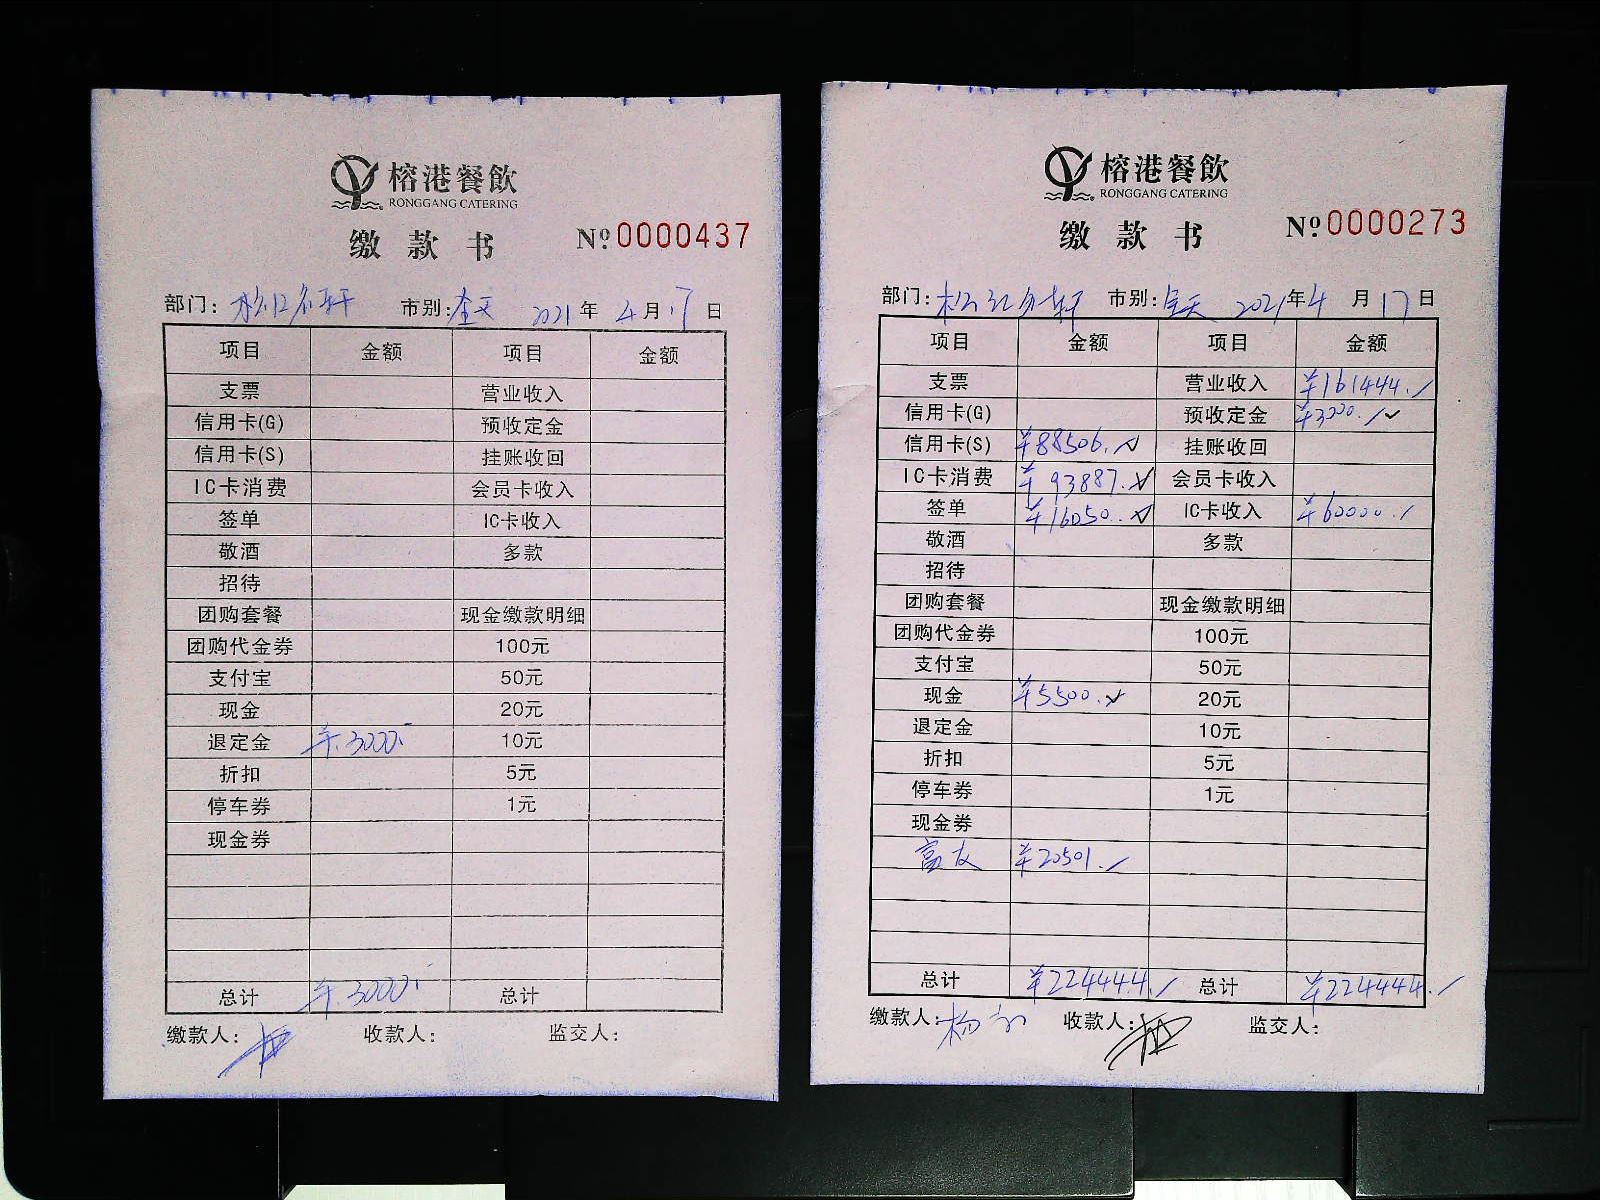 榕港餐飲
RONGGANG CATERING
缴款书 №0000437
部门: 松江名轩 市别: 全天 2021年4月17日
项目 金额 项目 金额
支票 营业收入
信用卡(G) 预收定金
信用卡(S) 挂账收回
IC卡消费 会员卡收入
签单 IC卡收入
敬酒 多款
招待
团购套餐 现金缴款明细
团购代金券 100元
支付宝 50元
现金 20元
退定金 ¥3000. 10元
折扣 5元
停车券 1元
现金券
总计 ¥3000. 总计
缴款人: 收款人: 监交人:
榕港餐飲
RONGGANG CATERING
缴款书 №0000273
部门: 松江名轩 市别: 全天 2021年4月17日
项目 金额 项目 金额
支票 营业收入 ¥161444.
信用卡(G) 预收定金 ¥3000.
信用卡(S) ¥88506. 挂账收回
IC卡消费 ¥93887. 会员卡收入
签单 ¥16050. IC卡收入 ¥60000.
敬酒 多款
招待
团购套餐 现金缴款明细
团购代金券 100元
支付宝 50元
现金 ¥5500. 20元
退定金 10元
折扣 5元
停车券 1元
现金券
富友 ¥20501.
总计 ¥224444. 总计 ¥224444.
缴款人: 收款人: 监交人: